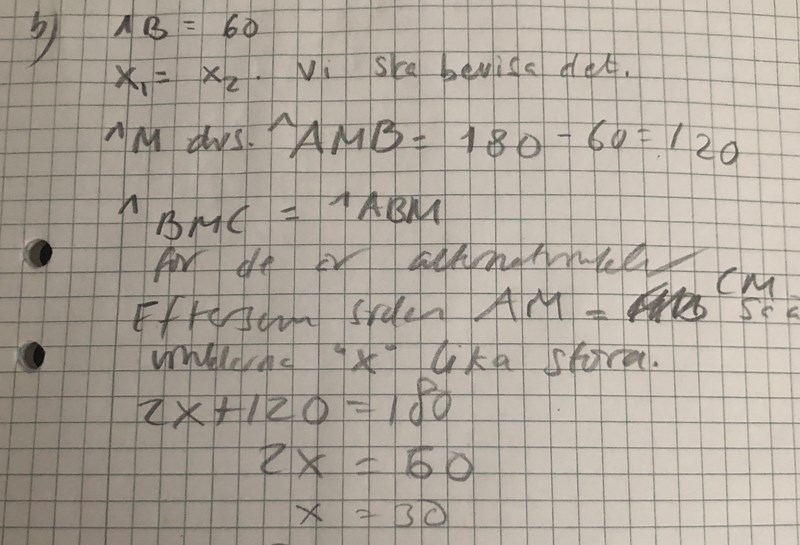 b) ^B = 60
x₁ = x₂. Vi ska bevisa det.
^M dvs. ^AMB = 180 - 60 = 120
^BMC = ^ABM
för de är alternatvinkel
Eftersom sidan AM = CM så
vinklarna "x" lika stora.
2x + 120 = 180
2x = 60
x = 30